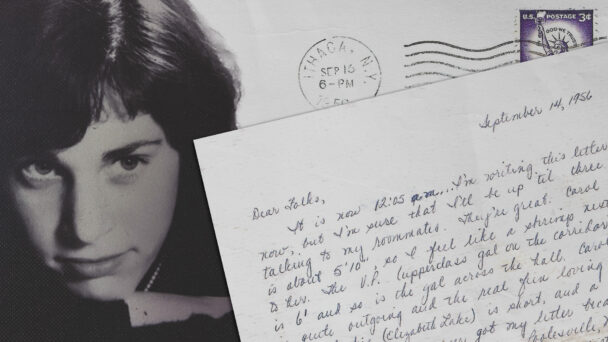 U.S. POSTAGE 3¢
IN GOD WE TRUST
ITHACA, N.Y.
SEP 15
6-PM
September 14, 1956
Dear Folks,
It is now 12:05 a.m... I'm writing this letter
now, but I'm sure that I'll be up 'til three
talking to my roommates. They're great. Carol
is about 5'10", so I feel like a shrimp next
to her. The V.P. (upperclass gal on the corridor)
is 6' and so is the gal across the hall. Carol
quite outgoing and the real fun loving
(Elizabeth Lake) is short, and a
got my letter
Poolesville,